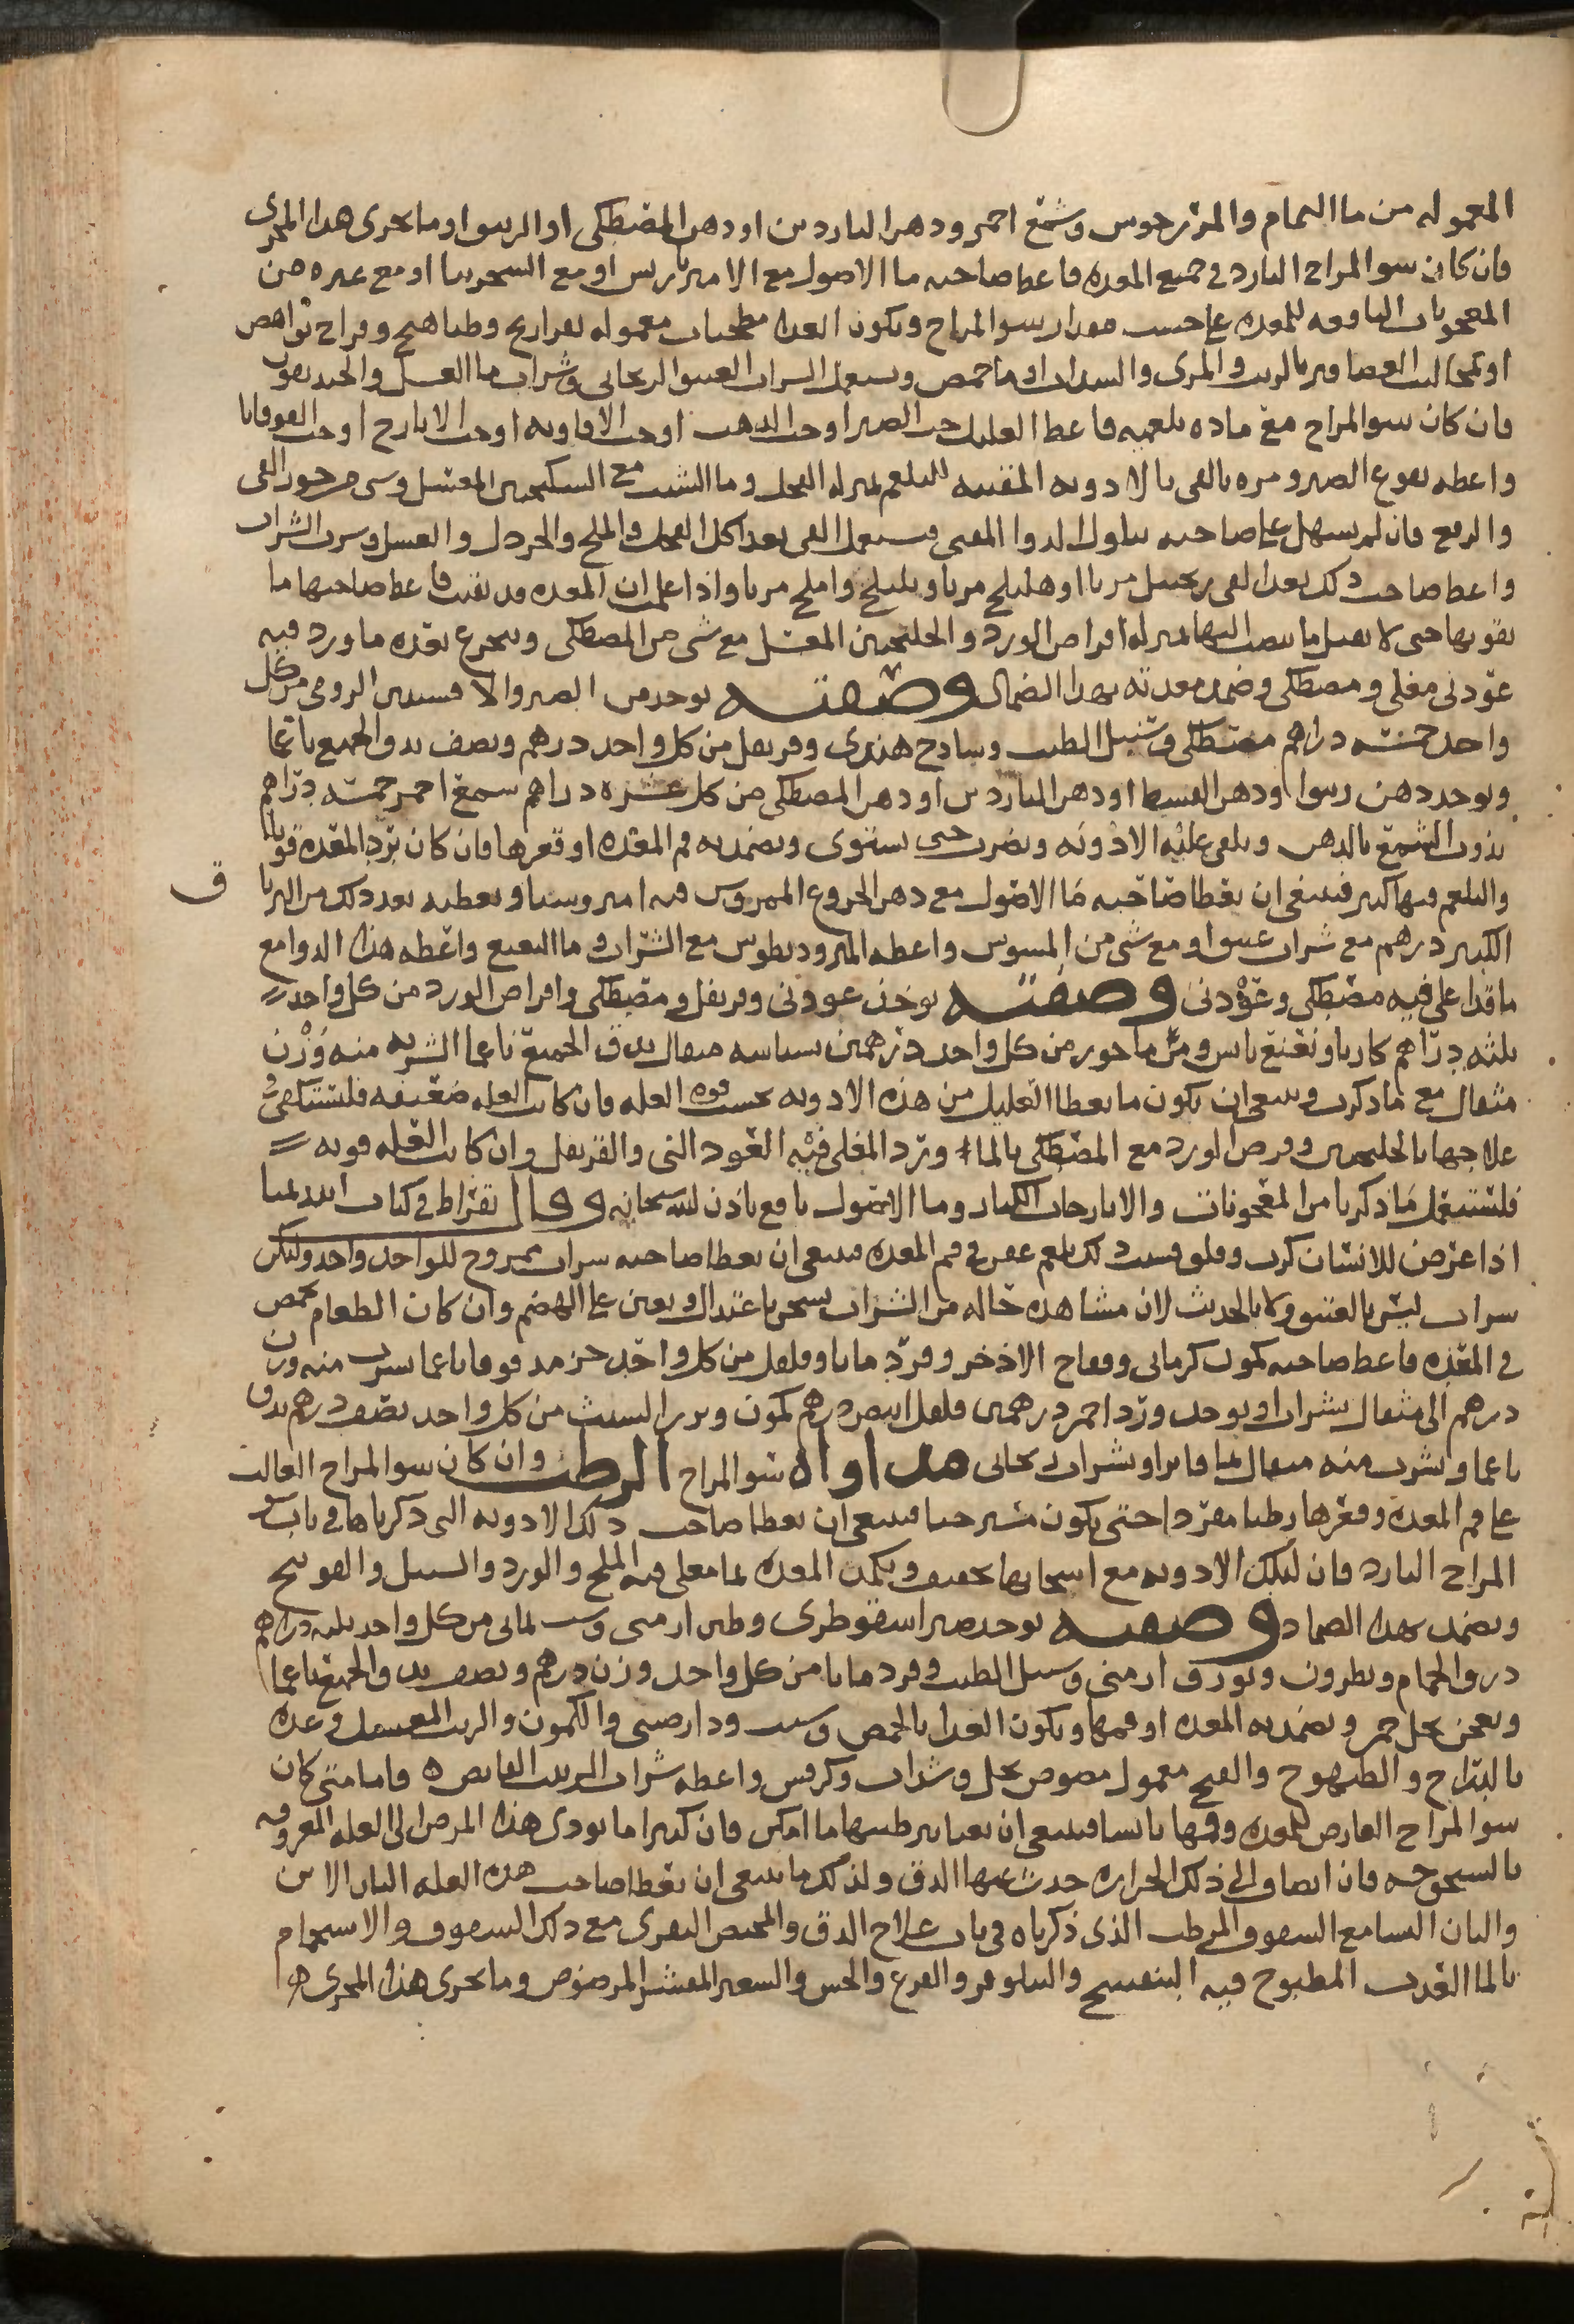 المعموله من ما النمام والمرزنجوس وشمع احمر ودهن الناردين او دهن المصطكى او الزيتون او ما يجرى هذا المجرى
فان كان سو المزاج البارد فى جميع المعده فاعط صاحبه ما الاصول مع الامير باريس او مع السجرينا او مع غيره من
المعجونات النافعه للمعده على حسب مقدار سو المزاج ويكون الغذا مطجنات معموله بفراريج وطياهيج وفراخ نواهض
او العصافير بالزيت والمرى والسداب او ما حمص ويستعمل الشراب العتيق الريحانى وشراب ما العسل
فان كان سو المزاج مع ماده بلغميه فاعط العليل حب الصبر او حب الذهب او حب الافاويه او حب الايارج او حب القوقايا
واعطه نقوع الصبر ومره بالقى بالادويه المنقيه للبلغم بمنزله الفجل وما الشبت مع السكنجبين المعسل وشى من جوز القى
والرقع فان لم يسهل على صاحبه تناول الدوا المقيى فيستعمل القى بعد اكل الفجل والملح والخردل والعسل وشرب الشراب
واعط صاحب ذلك بعد القى زنجبيل مربا او هليلج مربا وبليلج واملج مربا واذا علمت ان المعده قد نقيت فاعط صاحبها ما
يقويها حتى لا تقبل ما ينصب اليها بمنزله اقراص الورد والجلنجبين المعسل مع شى من المصطكى ويتجرع بعده ما ورد فيه
عود نى مغلى ومصطكى وضمد معدته بهذا الضماد وصفته يوخذ من الصبر والافسنتين الرومى من كل
واحد خمسه دراهم مصطكى وسنبل الطيب وسادج هندى وقرنفل من كل واحد درهم ونصف يدق الجميع ناعما
ويوخذ دهن او دهن القسط او دهن الناردين او دهن المصطكى من كل عشره دراهم شمع احمر خمسه دراهم
يذوب الشمع بالدهن ويلقى عليه الادويه ويضرب حتى يستوى ويضمد به فم المعده او قعرها فان كان برد المعده قويا
والبلغم فيها كثير فينبغى ان يعطا صاحبه ما الاصول مع دهن الخروع الممروس فيه امروسيا ويعطيه بعد ذلك من الترياق
الكبير درهم مع شراب عتيق او مع شى من الميسوس واعطه المثروديطوس مع الشراب وما النعنع واعطه هذا الدوا مع
ما قد اغلى فيه مصطكى وعود نى وصفته يوخذ عود نى وقرنفل ومصطكى واقراص الورد من كل واحد
ثلثه دراهم كاربا ونعنع يابس ومر ماحوز من كل واحد درهمين بسباسه مثقال يدق الجميع ناعما الشربه منه وزن
مثقال مع ما ذكرت وينبغى ان يكون ما يعطا العليل من هذه الادويه بحسب قوه العله فان كانت العله ضعيفه فليستكفى
علاجها بالجلنجبين وقرص الورد مع المصطكى بالما ورد المغلى فيه العود النى والقرنفل وان كانت العله قويه
فليستعمل ما ذكرنا من المعجونات والايارجات الكبار وما الاصول نافع باذن الله سبحانه وقال بقراط فى كتاب ابيديميا
اذا عرض للانسان كرب وقلق وسبب ذلك بلغم عفن فى فم المعده فينبغى ان يعطا صاحبه شراب ممزوج للواحد واحد وليكن
شراب ليس بالعتيق ولا بالحديث لان مشاهده حاله من الشراب يسخن باعتدال ويعين على الهضم وان كان الطعام يحمض
فى المعده فاعط صاحبه كمون كرمانى وفقاح الاذخر وقردمانا وفلفل من كل واحد جز مدقوقا ناعما يشرب منه وزن
درهم الى مثقال بشراب او يوخذ ورد احمر درهمين فلفل ابيض درهم كمون وبزر الشبث من كل واحد نصف درهم يدق
ناعما ويشرب منه مثقال بما فاتر او شراب ريحانى مداواه سو المزاج الرطب وان كان سو المزاج الغالب
على فم المعده وقعرها رطبا مفردا حتى يكون مسترخيا فينبغى ان يعطا صاحب ذلك الادويه التى ذكرناها فى باب سو
المزاج البارد فان لتلك الادويه مع اسخانها تجفيف ويكمد المعده بما مغلى فيه الملح والورد والسنبل والفوتنج
ويضمد بهذا الضماد وصفته يوخذ صبر اسقوطرى وطين ارمنى وشب يمانى من كل واحد ثلثه دراهم
ذرق الحمام ونطرون وبورق ارمنى وسنبل الطيب وقردمانا من كل واحد وزن درهم ونصف يدق الجميع ناعما
ويعجن بخل خمر ويضمد به المعده او فمها ويكون الغذا بالحمص وشبث ودارصينى والكمون والزيت المغسول وغده
بالدراج والطيهوج والقبج معمول مصوص بخل وسداب وكرفس واعطه شراب الزبيب القابض ه فاما متى كان
سو المزاج العارض للمعده وفمها يابسا فينبغى ان يعنا بترطيبها ما امكن فان كثيرا ما يودى هذا المرض الى العله المعروفه
بالشيخوخيه فان انضاف الى ذلك الحراره حدث عنها الدق ولذلك ما ينبغى ان يعطا صاحب هذه العله البان الاتن
والبان النسا مع السفوف المرطب الذى ذكرناه فى باب علاج الدق والمخيض البقرى مع ذلك السفوف والاستحمام
بالما العذب المطبوخ فيه البنفسج والنيلوفر والقرع والخس والشعير المقشر المرضوض وما يجرى هذا المجرى ه